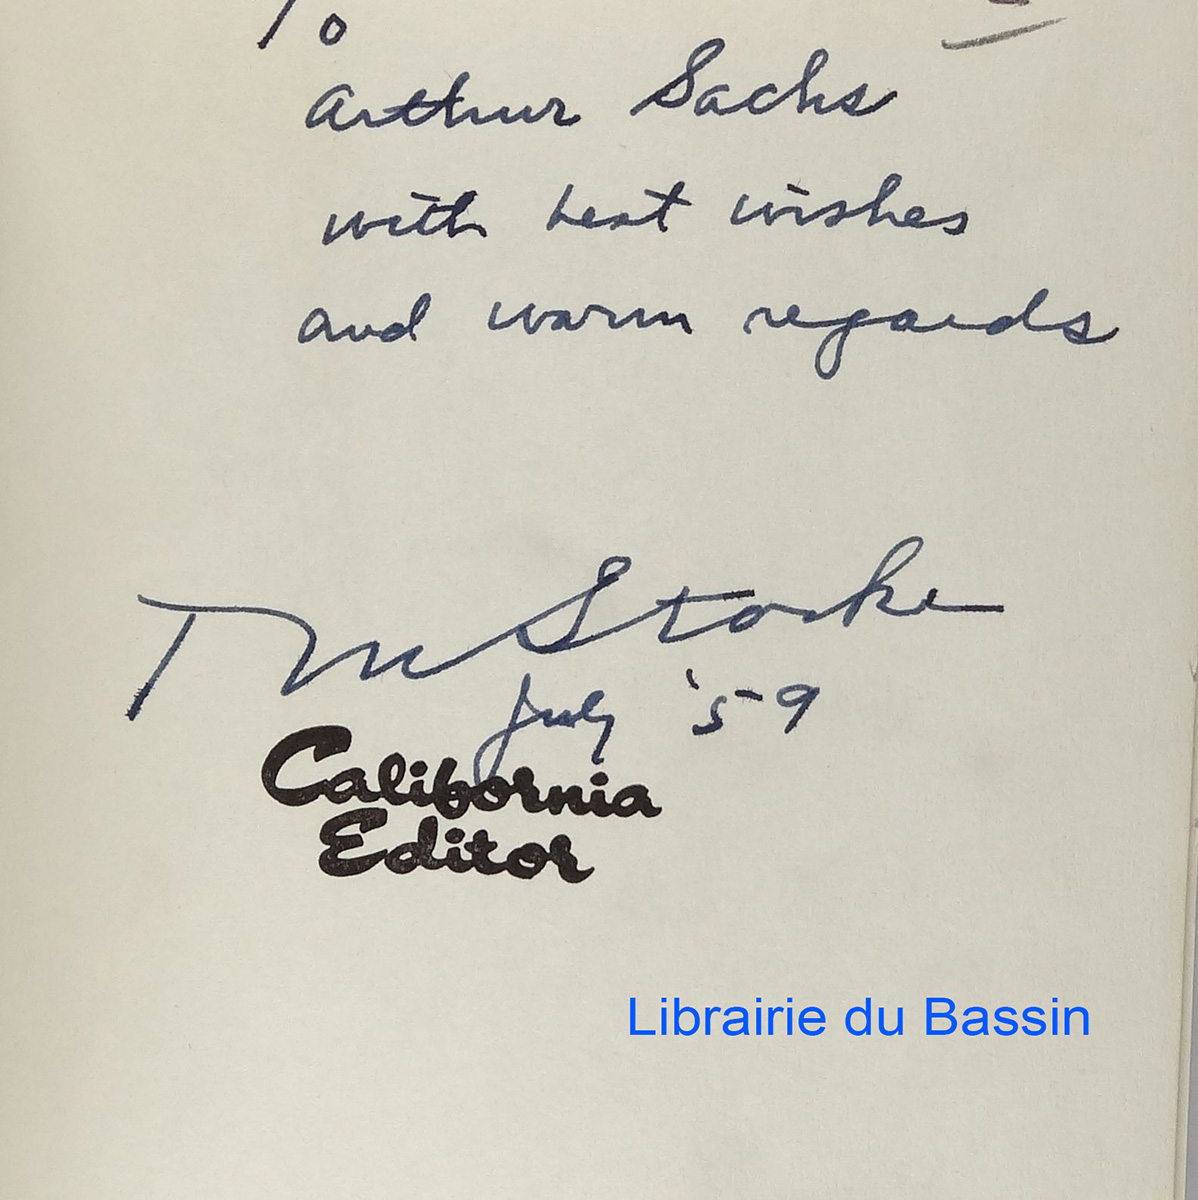 To
Arthur Sachs
with best wishes
and warm regards
TM Storke
July '59
California
Editor
Librairie du Bassin